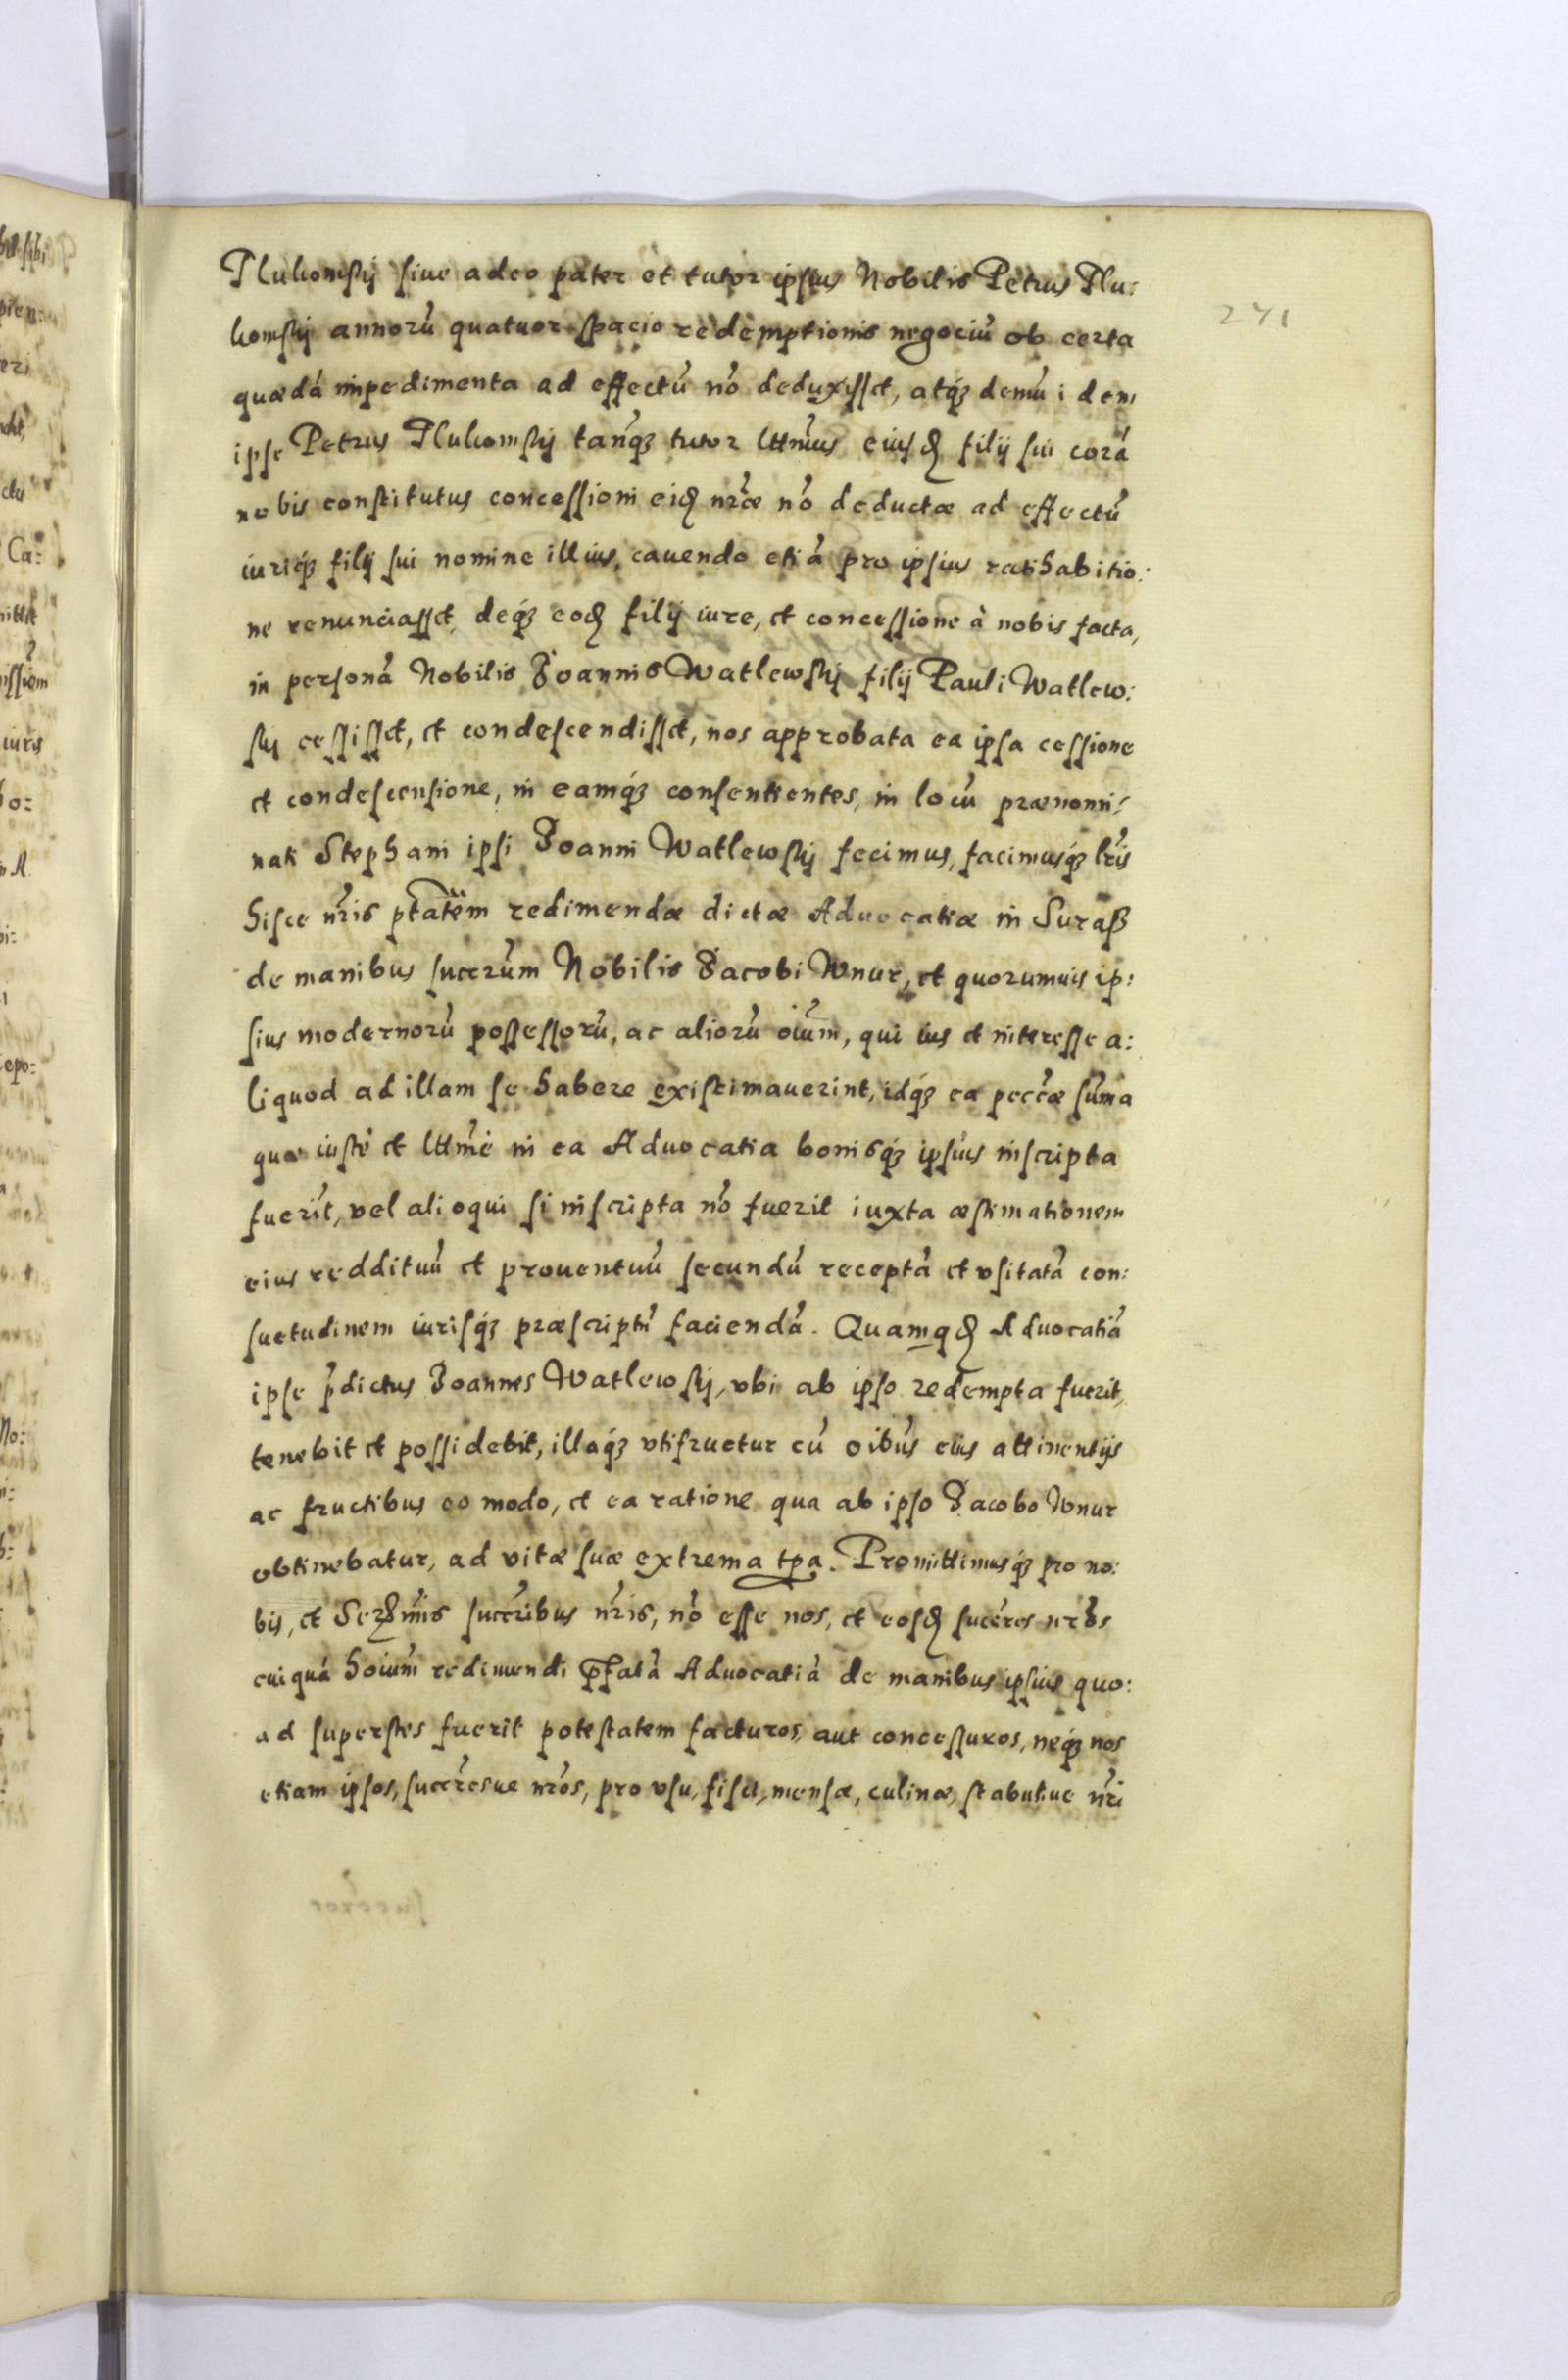 Plukomſkij ſiue adeo pater et tutor ipſius Nobilis Petrus Plu:
komſkij annorũ quatuor ſpacio redemptionis negociũ ob certa
quædã impedimenta ad effectũ nõ deduxiſſet, atq́ꝫ demũ idem
ipſe Petrus Plukomſkij tanq́ꝫ tutor lttimus eiuſꝺ filij ſui corã
nobis conſtitutus conceſſioni eiꝺ nr̃æ nõ deductæ ad effectũ
iuriq́ꝫ filij ſui nomine illius, cauendo etiã pro ipſius ratihabitio:
ne renunciaſſet, deq́ꝫ eoꝺ filij iure, et conceſſione à nobis facta,
in perſonã Nobilis Joannis Watlewſkij filij Pauli Watlew:
ſkij ceſſiſſet, et condeſcendiſſet, nos approbata ea ipſa ceſſione
et condeſcenſione, in eamq́ꝫ conſentientes, in locũ prænomi:
nati Stephani ipſi Joanni Watlewſkij fecimus, facimusq́ꝫ lr̃is
hiſce nr̃is ptãtem redimendæ dictæ Aduocatiæ in Suraß
de manibus ſuccr̃um Nobilis Jacobi Wnur, et quorumuis ip:
ſius modernorũ poſſeſſorũ, ac aliorũ oĩum, qui ius et intereſſe a:
liquod ad illam ſe habere exiſtimauerint, idq́ꝫ ea peccæ ſũma
quæ iuſtè et lttimè in ea Aduocatia bonisq́ꝫ ipſius inſcripta
fuerit, vel alioqui ſi inſcripta nõ fuerit iuxta æſtimationem
eius reddituũ et prouentuũ ſecundũ receptã et vſitatã con:
ſuetudinem iuriſq́ꝫ præſcriptũ faciendã. Quamqꝺ Aduocatiã
ipſe p̃dictus Joannes Watlewſkij, vbi ab ipſo redempta fuerit,
tenebit et poſſidebit, illaq́ꝫ vtifruetur cũ oĩbus eius attinentijs
ac fructibus eo modo, et ea ratione qua ab ipſo Jacobo Wnur
obtinebatur, ad vitæ ſuæ extrema tp̃a. Promittimusq́ꝫ pro no:
bis, et Ser̃mis ſuccr̃ibus nr̃is, nõ eſſe nos, et eoſꝺ ſuccr̃es nr̃os
cuiquã hoĩum redimendi p̃fatã Aduocatiã de manibus ipſius quo:
ad ſuperſtes fuerit poteſtatem facturos, aut conceſſuros, neq́ꝫ nos
etiam ipſos, ſuccr̃esue nr̃os, pro vſu, fiſci, menſæ, culinæ, ſtabuliue nr̃i
271